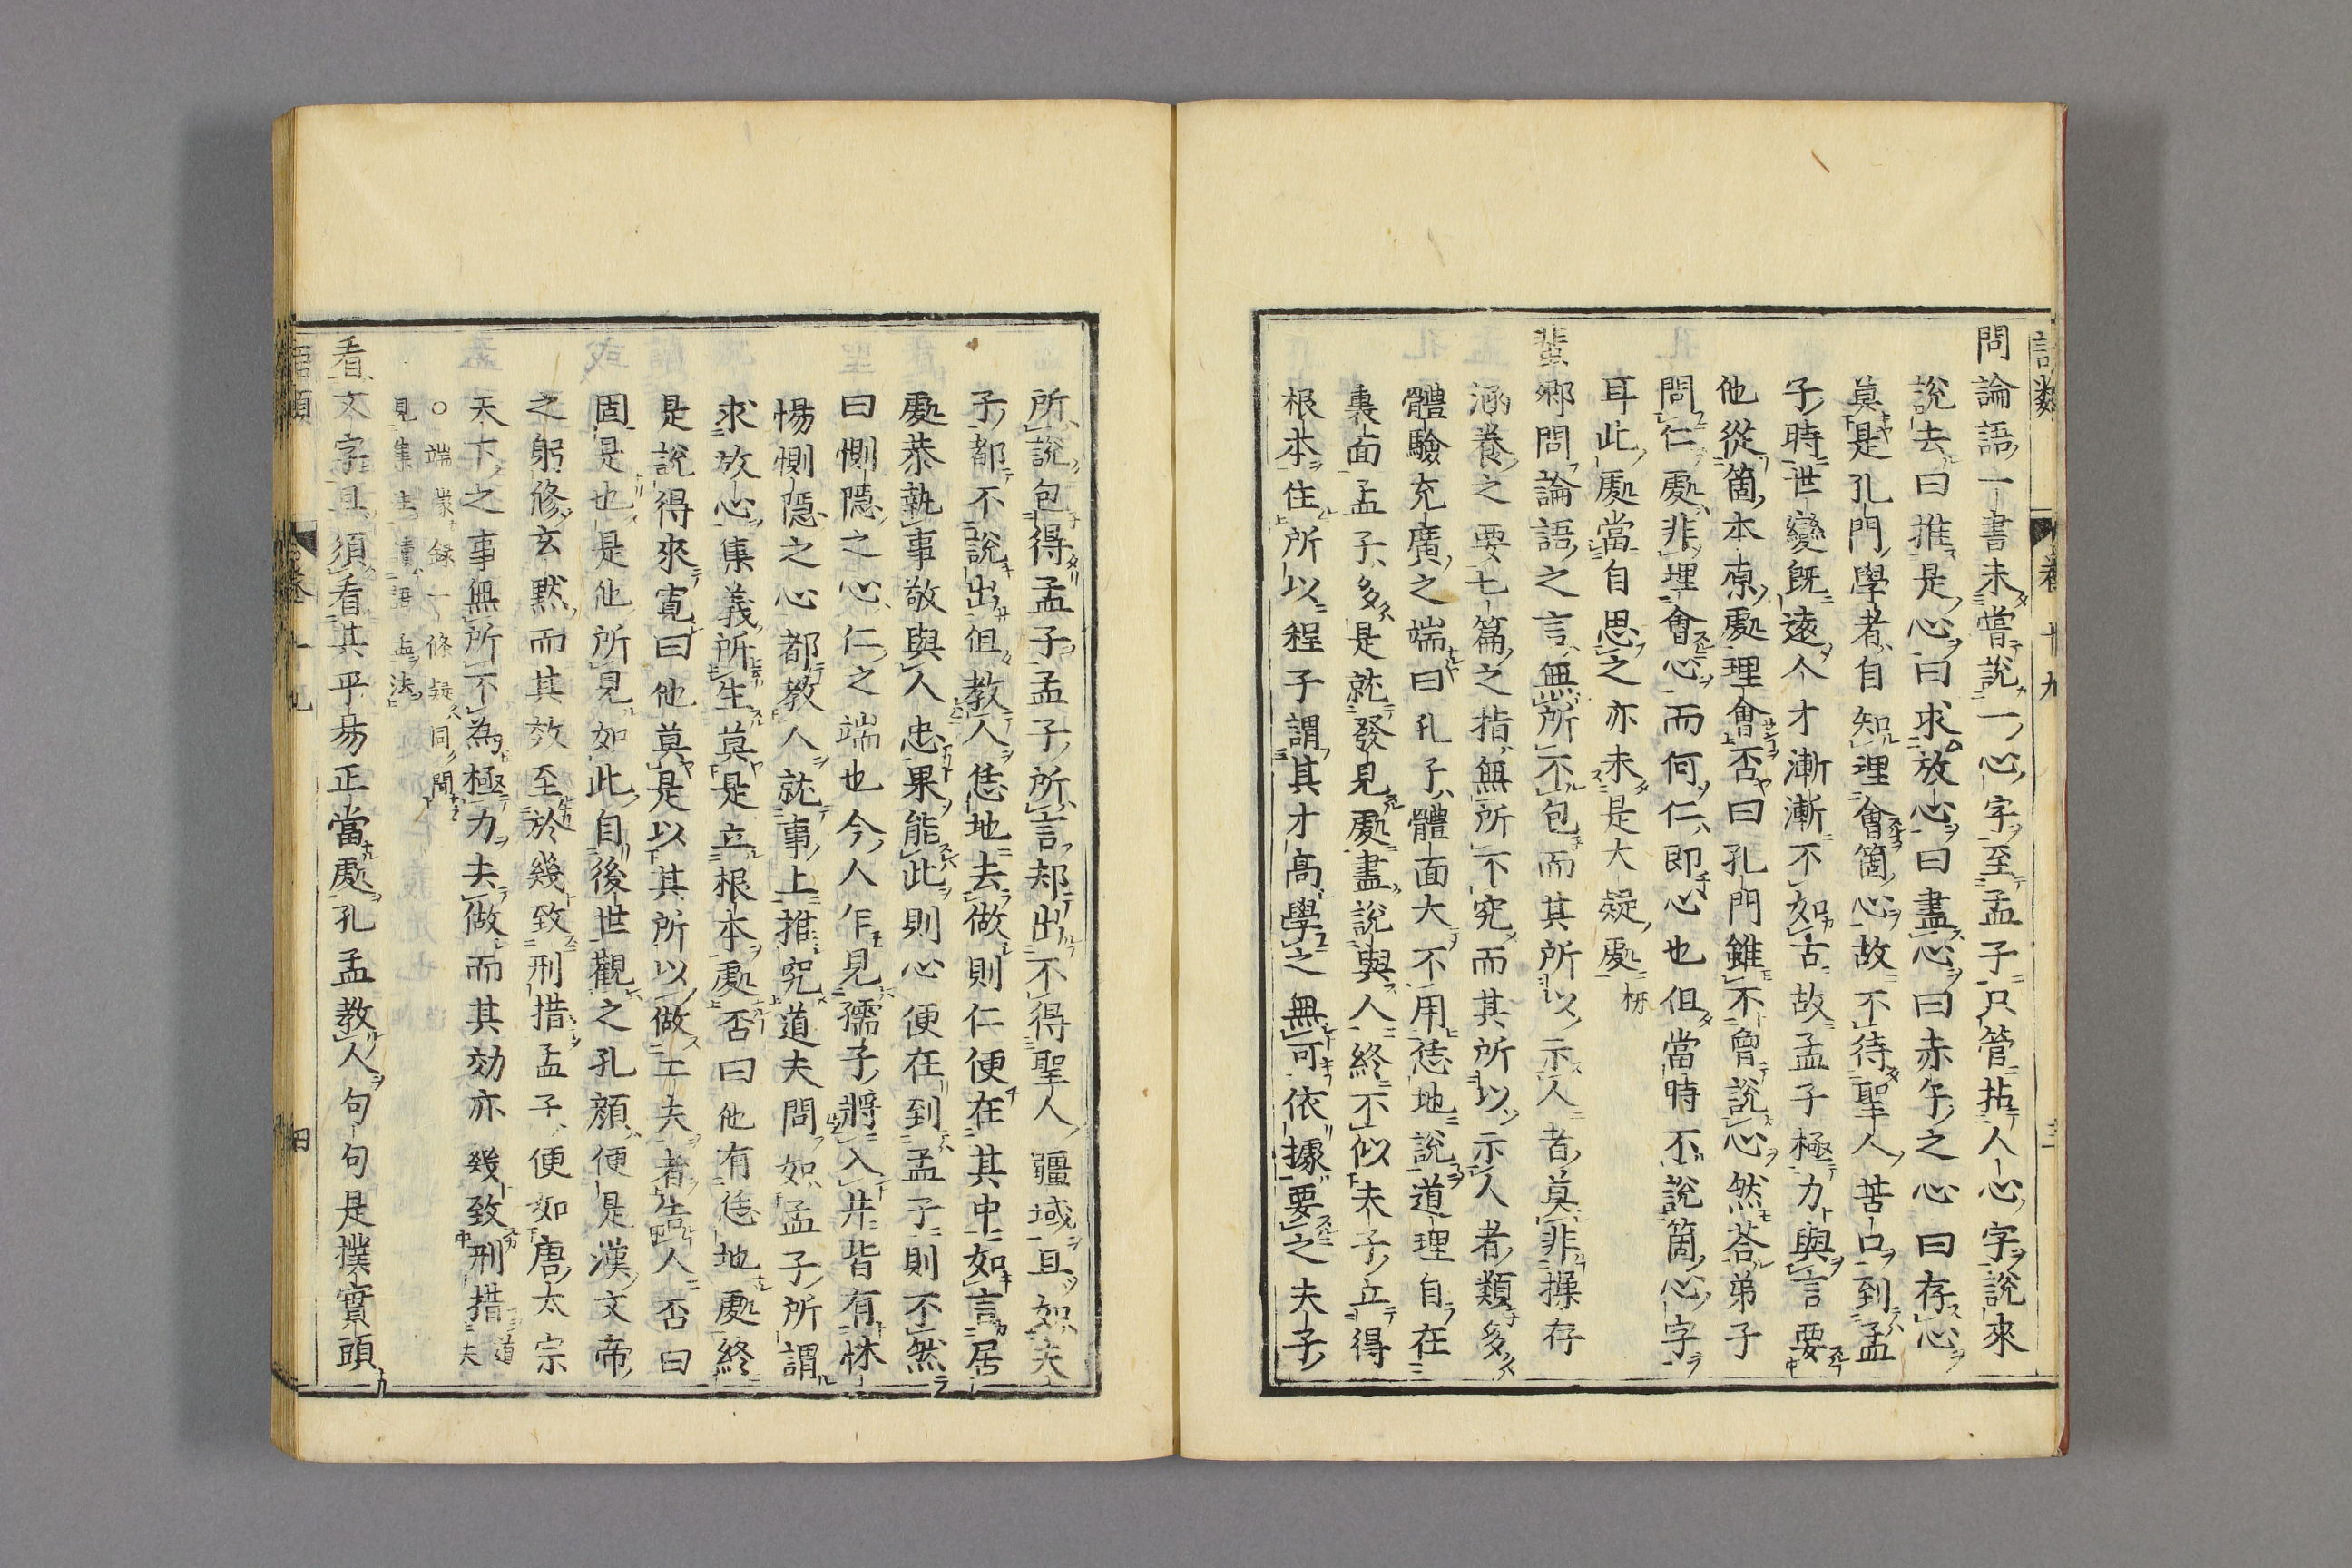 語類 卷十九
問論語一書未嘗說一心字至孟子只管拈人心字說來
說去曰推是心曰求放心曰盡心曰赤子之心曰存心
莫是孔門學者自知理會箇心故不待聖人苦口到孟
子時世變旣遠人才漸漸不如古故孟子極力與言要
他從箇本原處理會否曰孔門雖不曾說心然荅弟子
問仁處非理會心而何仁即心也但當時不說箇心字
耳此處當自思之亦未是大疑處 枅
蜚卿問論語之言無所不包而其所以示人者莫非操存
涵養之要七篇之指無所不究而其所以示人者類多
體驗充廣之端曰孔子體面大不用恁地說道理自在
裏面孟子多是就發見處盡說與人終不似夫子立得
根本住所以程子謂其才高學之無可依據要之夫子
所說包得孟子孟子所言却出不得聖人疆域且如夫
子都不說出但教人恁地去做則仁便在其中如言居
處恭執事敬與人忠果能此則心便在到孟子則不然
曰惻隱之心仁之端也今人乍見孺子將入井皆有怵
惕惻隱之心都教人就事上推究道夫問如孟子所謂
求放心集義所生莫是立根本處否曰他有恁地處終
是說得來寬曰他莫是以其所以做工夫者告人否曰
固是也是他所見如此自後世觀之孔顏便是漢文帝
之躬修玄默而其效至於幾致刑措孟子便如唐太宗
天下之事無所不為極力去做而其効亦幾致刑措 道夫
○端蒙錄一條疑同聞
見集註讀語孟法
看文字且須看其平易正當處孔孟教人句句是撲實頭
語類 卷十九 四